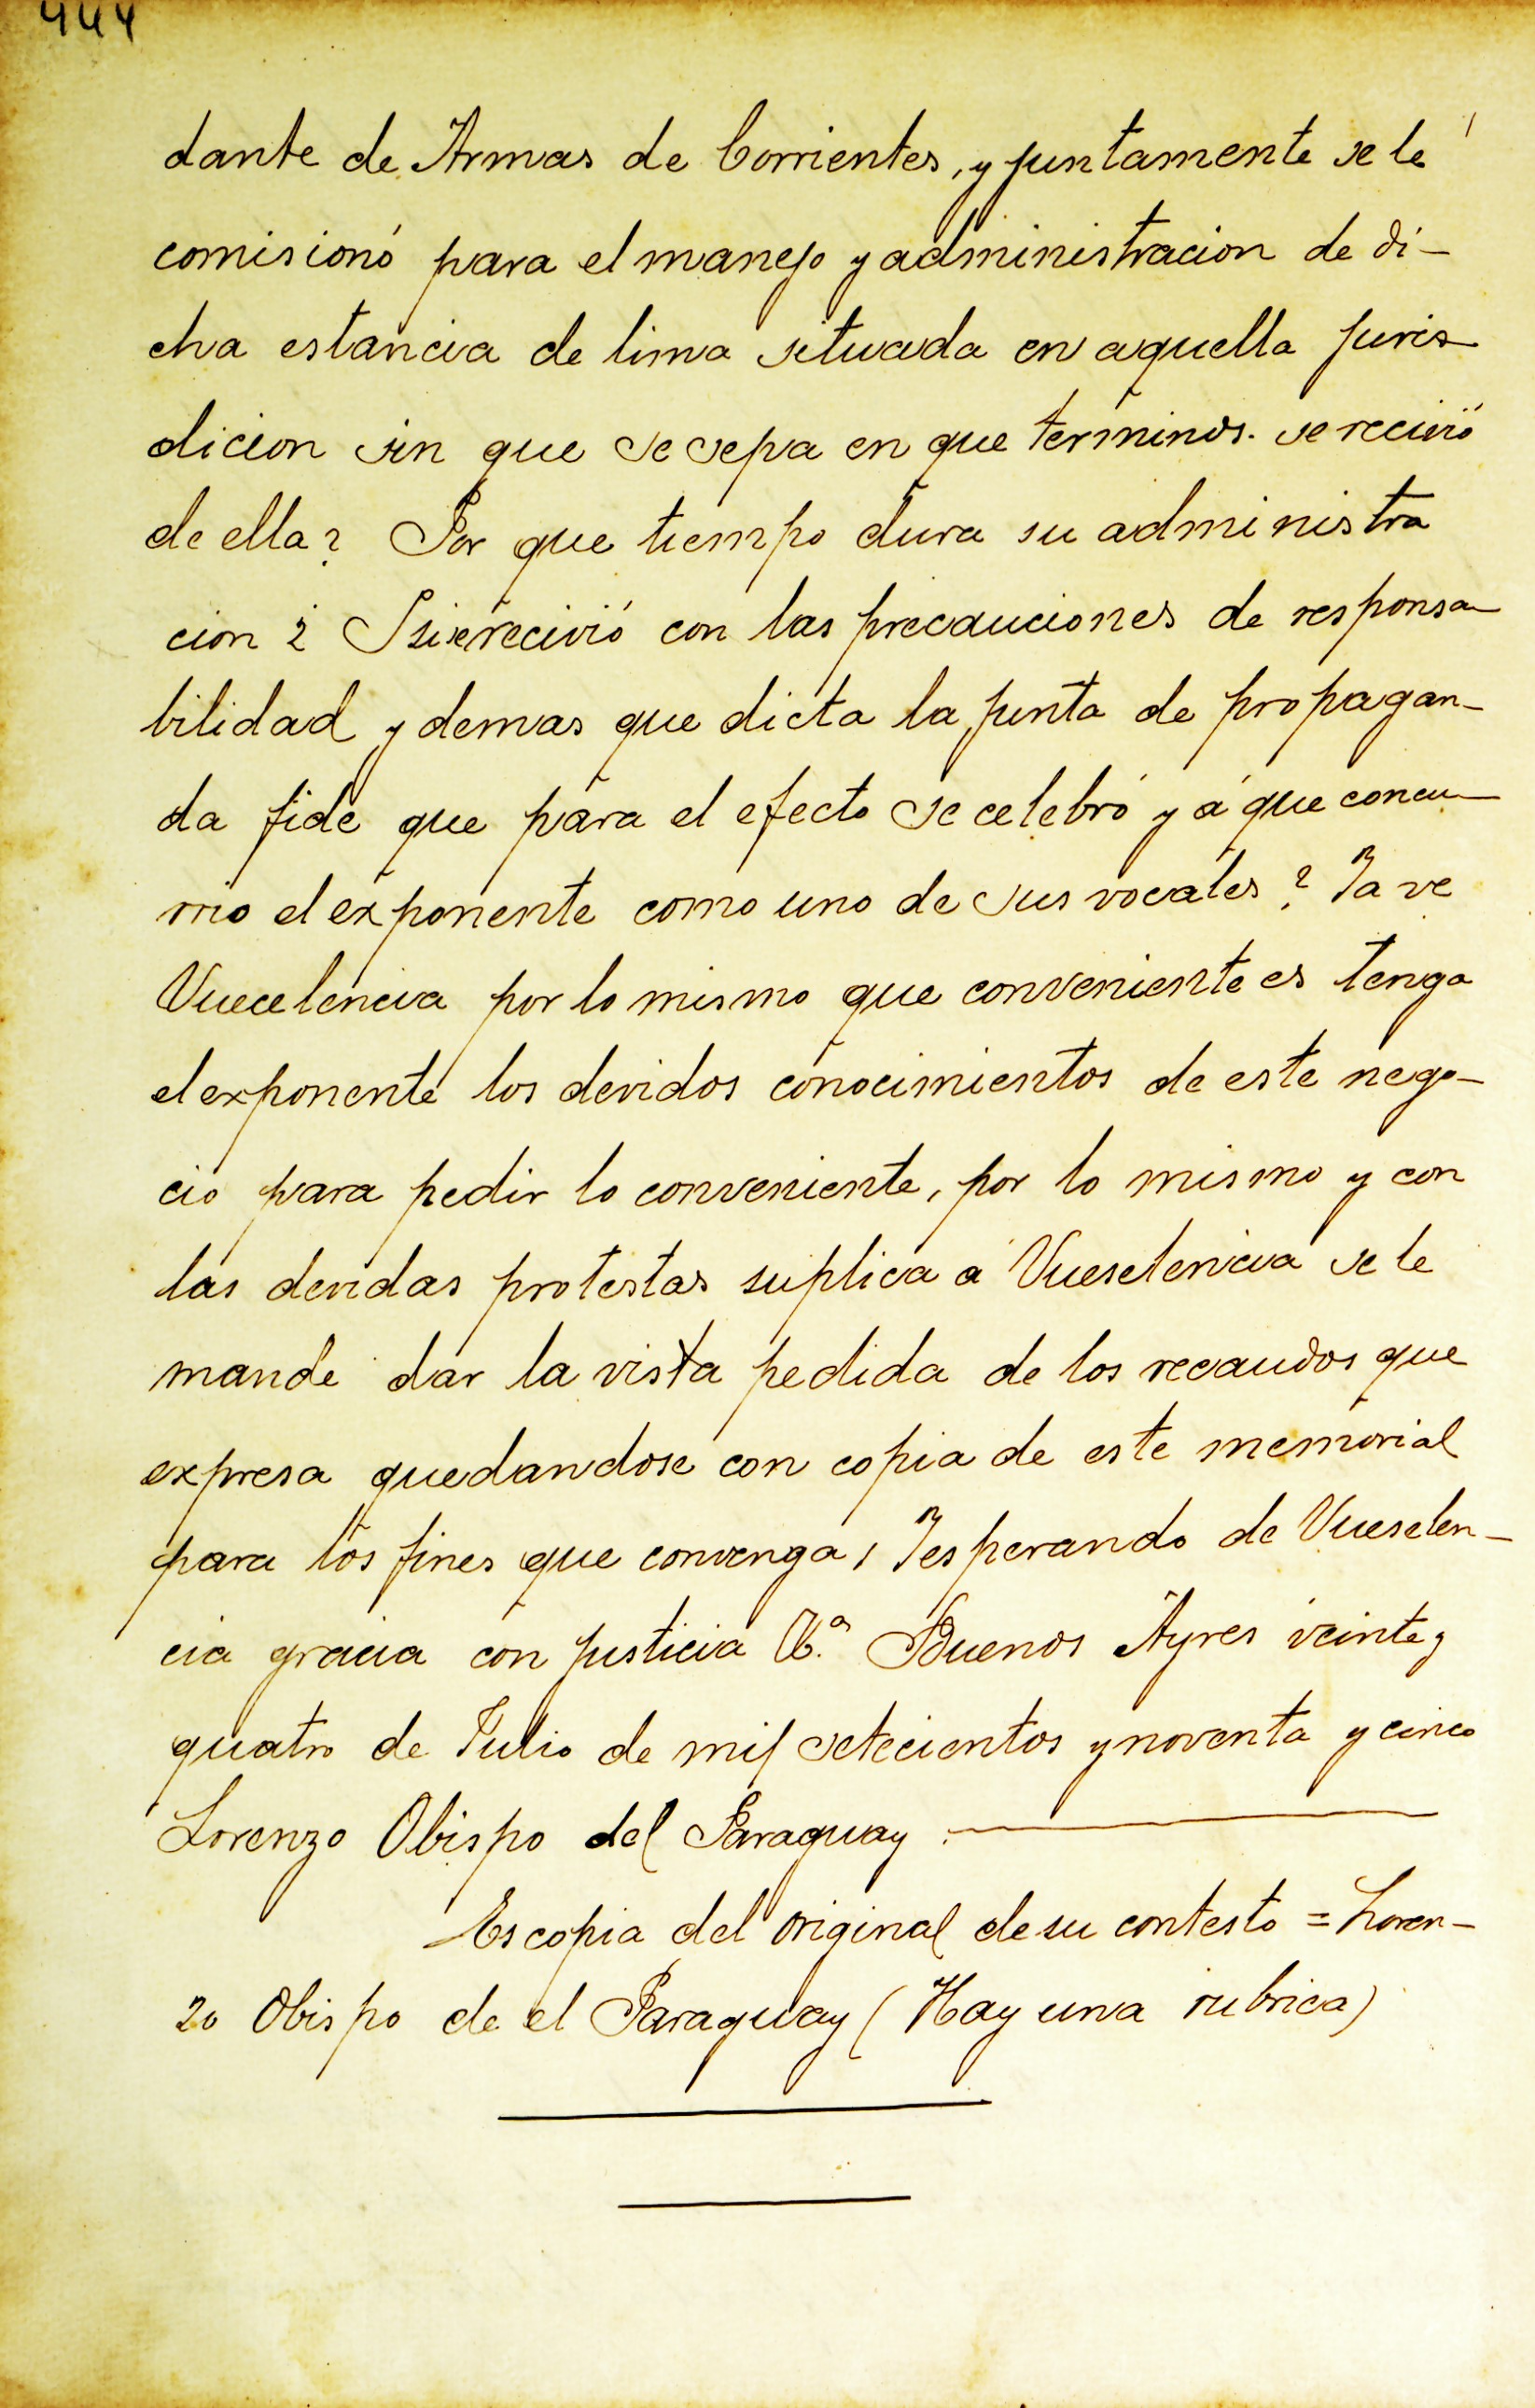 444
dante de Armas de Corrientes, y juntamente se le
comisionó para el manejo y administracion de di-
cha estancia de lima situada en aquella juris-
dicion sin que se sepa en que terminos. se recivió
de ella? Por que tiempo dura su administra
cion? I si se recivió con las precauciones de responsa-
bilidad y demas que dicta la junta de propagan-
da fide que para el efecto se celebró y á que concu-
rrio el exponente como uno de sus vocales? Ya ve
Vuecelencia por lo mismo que conveniente es tenga
el exponente los devidos conocimientos de este nego-
cio para pedir lo conveniente, por lo mismo y con
las devidas protestas suplica á Vueselencia se le
mande dar la vista pedida de los recaudos que
expresa quedandose con copia de este memorial
para los fines que convenga, Y esperando de Vueselen-
cia gracia con justicia Buenos Ayres veinte y
quatro de Julio de mil setecientos y noventa y cinco
Lorenzo Obispo del Paraguay.
Es copia del original de su contesto = Loren-
zo Obispo de el Paraguay (Hay una rubrica)